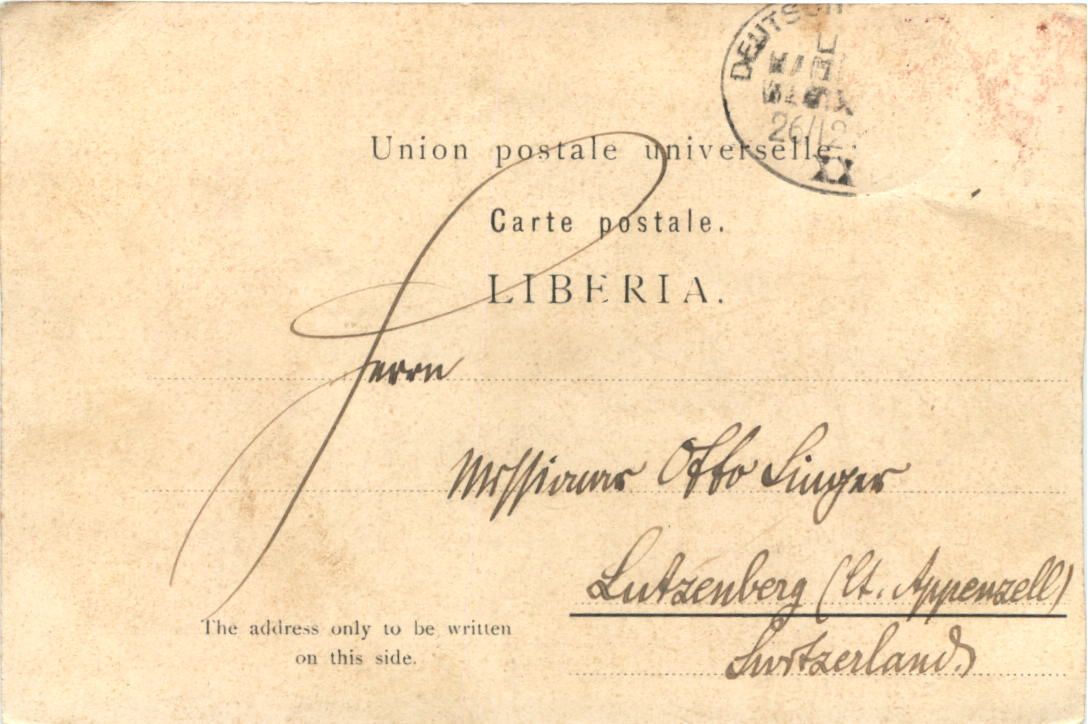 DEUTSCH
26/12
XX
Union postale universelle.
Carte postale.
LIBERIA.
Herrn
Missionar Otto Singer
Lutzenberg (Ct. Appenzell)
Switzerland.
The address only to be written
on this side.